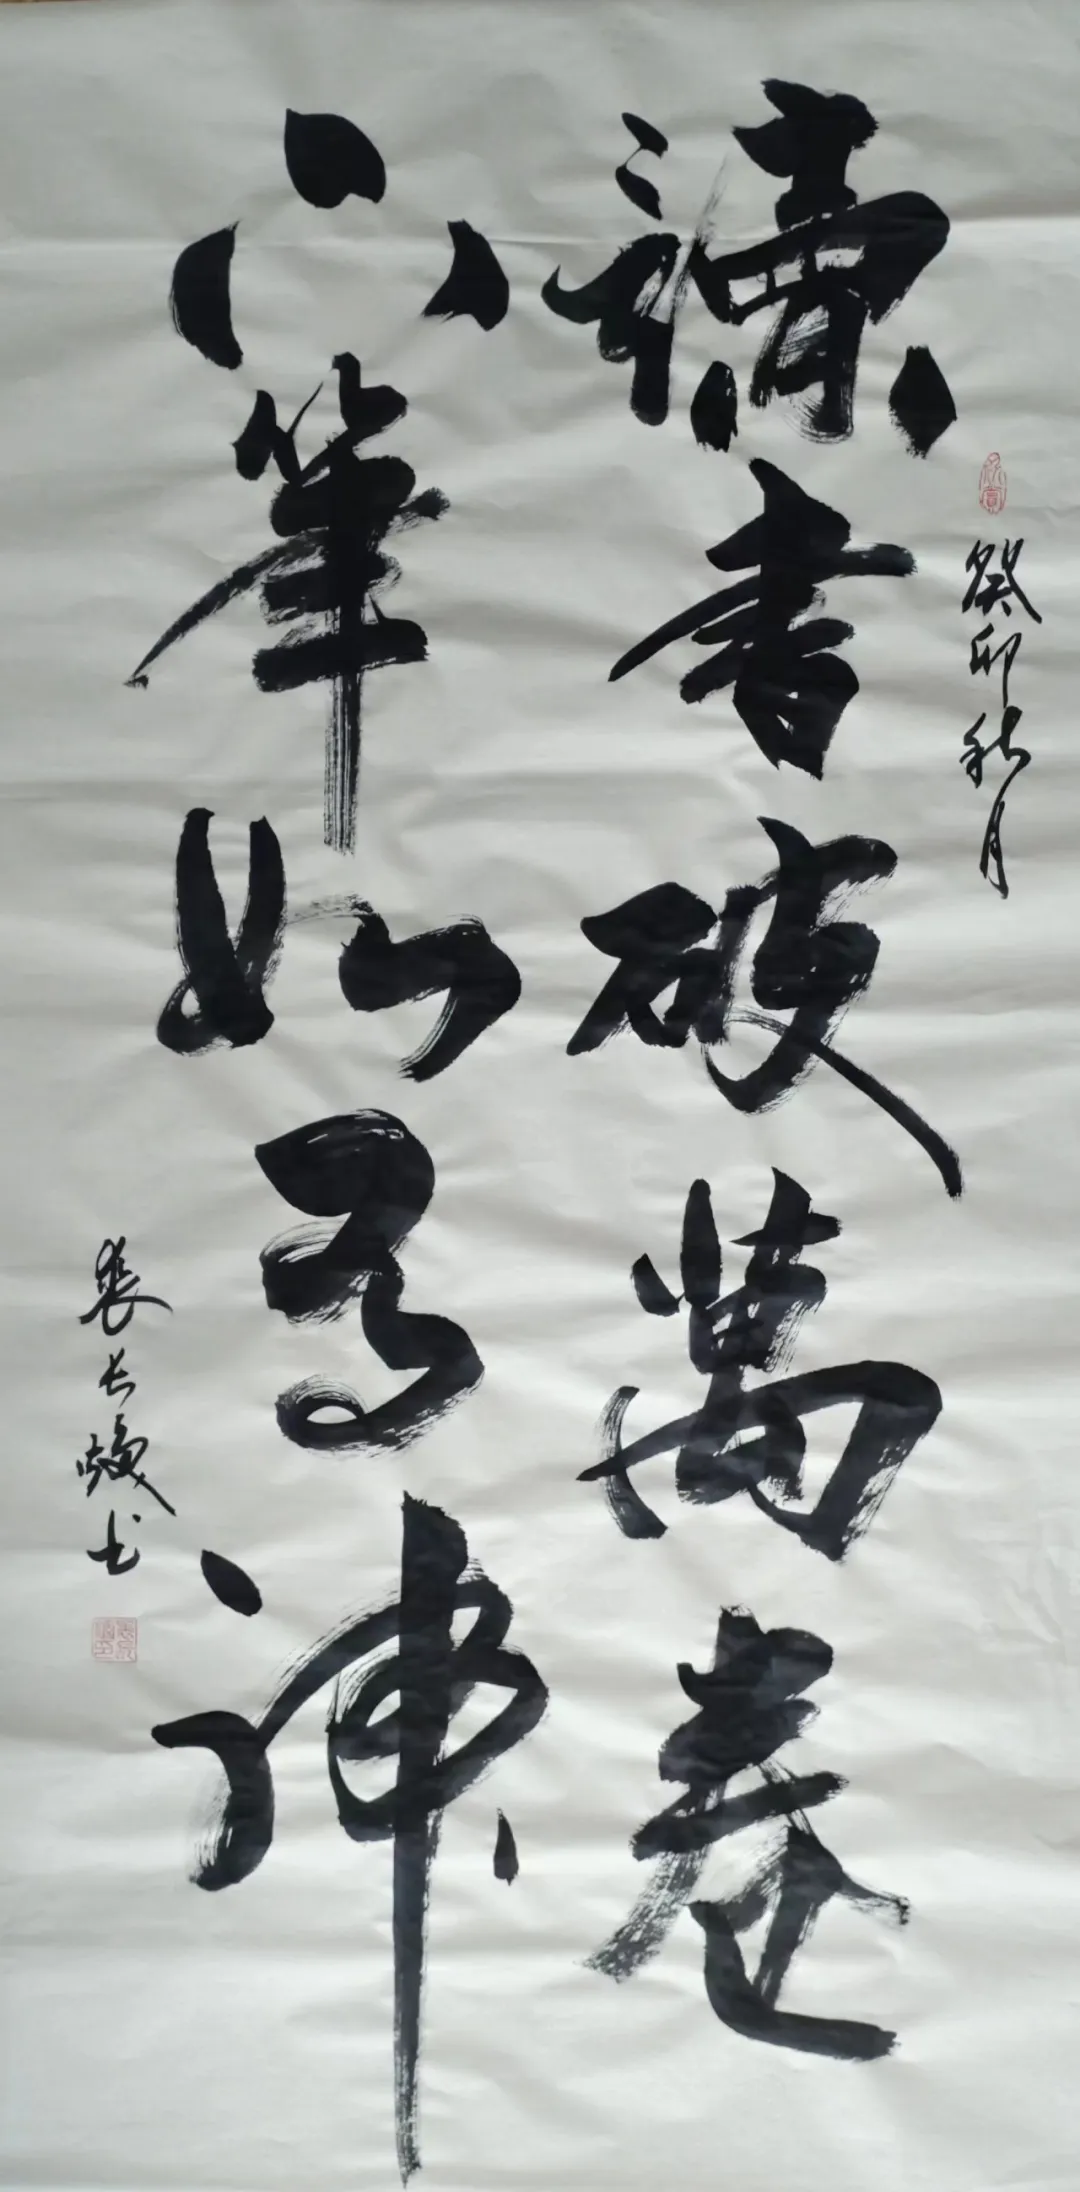 癸卯秋月
讀書破萬卷
下筆如有神
长书